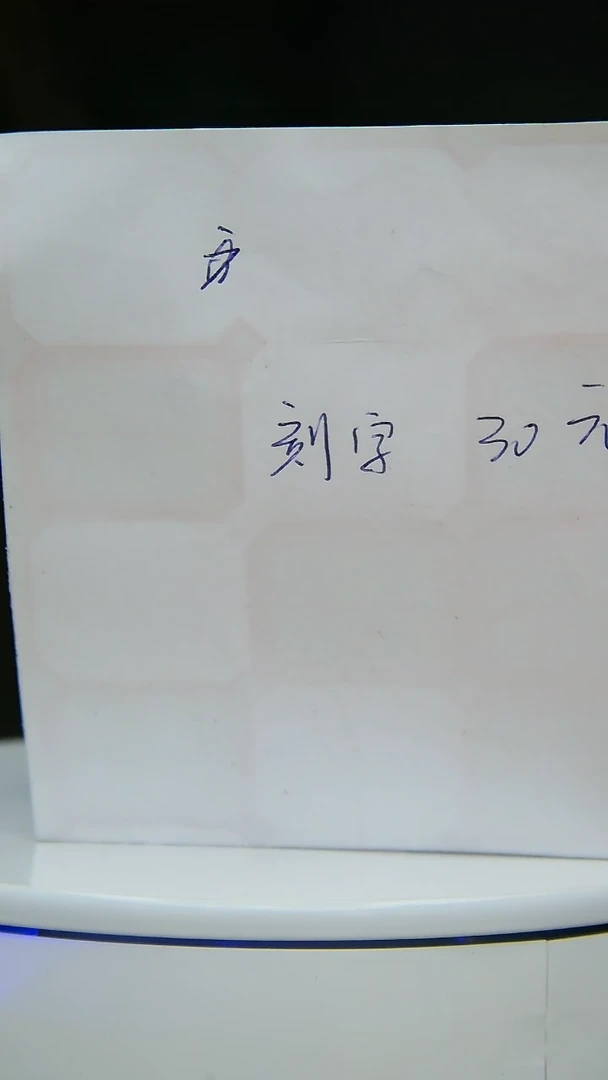 刻字 30元